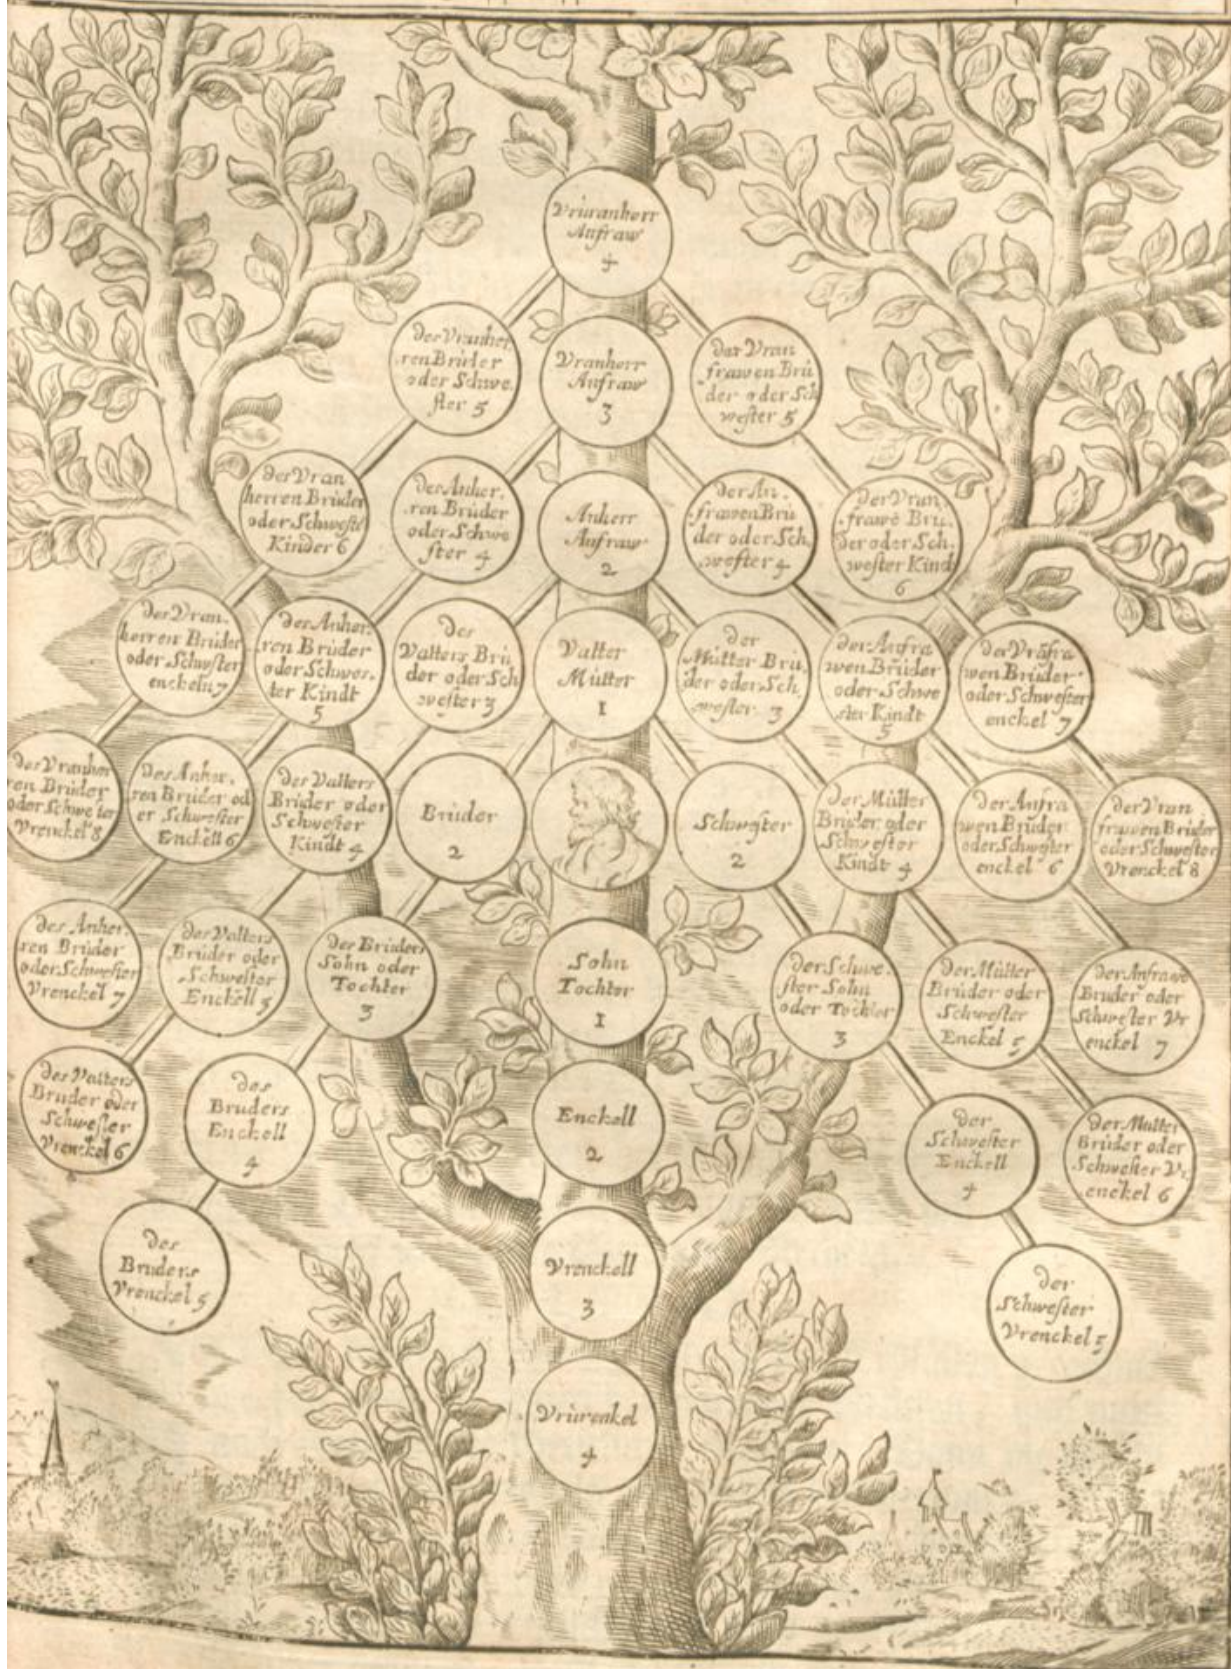 Vriuranherr
Anfraw
4
des Vranher,
ren Brüder
oder Schwe,
ster 5
Vranherr
Anfraw
3
der Vran
frawen Brü
der oder Sch
wester 5
des Vran
herren Brüder
oder Schwest
Kinder 6
des Anher,
ren Brüder
oder Schwe
ster 4
Anherr
Anfraw
2
der An,
frawen Brü
der oder Sch,
wester 4
der Vran
frawē Brü,
der oder Sch,
wester Kind
6
des Vran,
herren Brüder
oder Schwester
enckeln 7
des Anher,
ren Brüder
oder Schwes,
ter Kindt
5
des
Vatters Brü
der oder Sch
wester 3
Vatter
Mütter
1
der
Mütter Brü,
der oder Sch,
wester 3
der Anfra
wen Brüder
oder Schwe
ster Kindt
5
der Vrāfra
wen Brüder
oder Schwester
enckel 7
des Vranher
ren Brüder
oder Schwester
Vrenckel 8
des Anher,
ren Brüder od
er Schwester
Enckell 6
des Vatters
Brüder oder
Schwester
Kindt 4
Brüder
2
Schwester
2
der Mütter
Brüder oder
Schwester
Kindt 4
der Anfra
wen Brüder
oder Schwester
enckel 6
der Vran
frawen Brüder
oder Schwester
Vrenckel 8
des Anher,
ren Brüder
oder Schwester
Vrenckel 7
des Vatters
Brüder oder
Schwester
Enckell 5
des Brüders
Sohn oder
Tochter
3
Sohn
Tochter
1
der Schwe,
ster Sohn
oder Tochter
3
der Mütter
Brüder oder
Schwester
Enckel 5
der Anfrawē
Brüder oder
Schwester Vr
enckel 7
des Vatters
Bruder oder
Schwester
Vrenckel 6
des
Bruders
Enckell
4
Enckell
2
der
Schwester
Enckell
4
der Mutter
Brüder oder
Schwester Vr,
enckel 6
des
Bruders
Vrenckel 5
Vrenckell
3
der
Schwester
Vrenckel 5
Vrürenkel
4